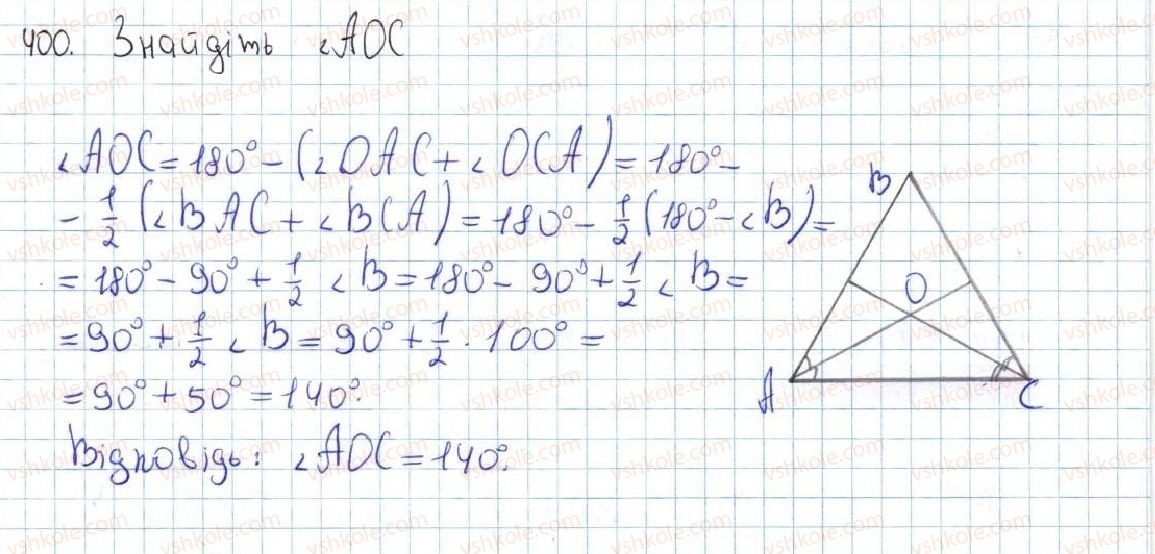 400. Знайдіть ∠AOC
∠AOC = 180° - (∠OAC + ∠OCA) = 180° -
- 1/2 (∠BAC + ∠BCA) = 180° - 1/2 (180° - ∠B) =
= 180° - 90° + 1/2 ∠B = 180° - 90° + 1/2 ∠B =
= 90° + 1/2 ∠B = 90° + 1/2 · 100° =
= 90° + 50° = 140°.
Відповідь: ∠AOC = 140°.
B
O
A
C
vshkole.com